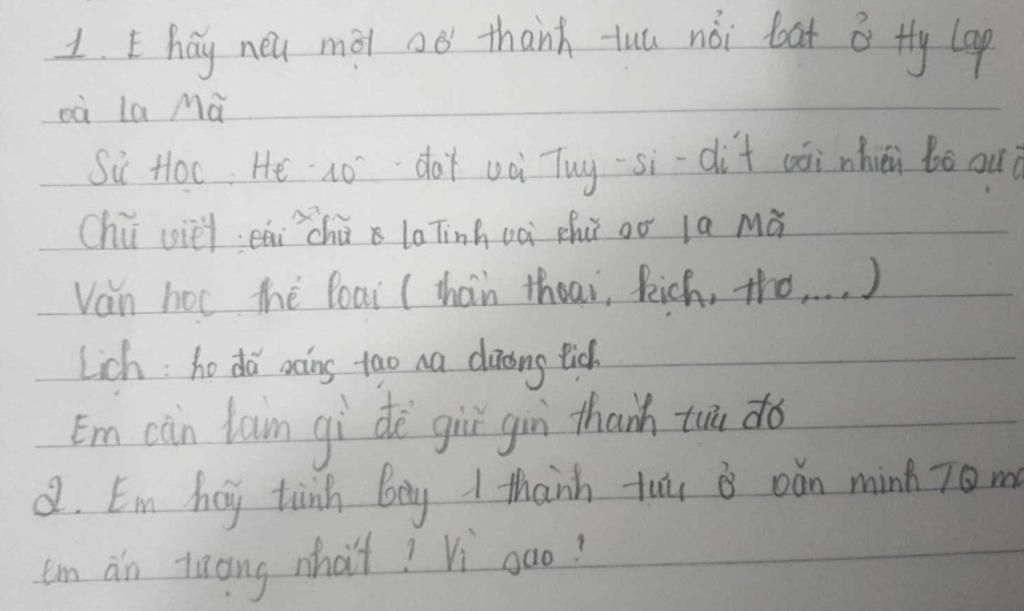 1. E hãy nêu một số thành tựu nổi bật ở Hy Lạp
và La Mã
Sử Học. Hê-rô-đốt và Tuy-si-đít với nhiều bộ sử
Chữ viết: cái chữ La Tinh và chữ số La Mã
Văn học thể loại (thần thoại, kịch, thơ,....)
Lịch: họ đã sáng tạo ra dương lịch
Em cần làm gì để giữ gìn thành tựu đó
2. Em hãy trình bày 1 thành tựu ở văn minh TQ mà
em ấn tượng nhất? Vì sao?